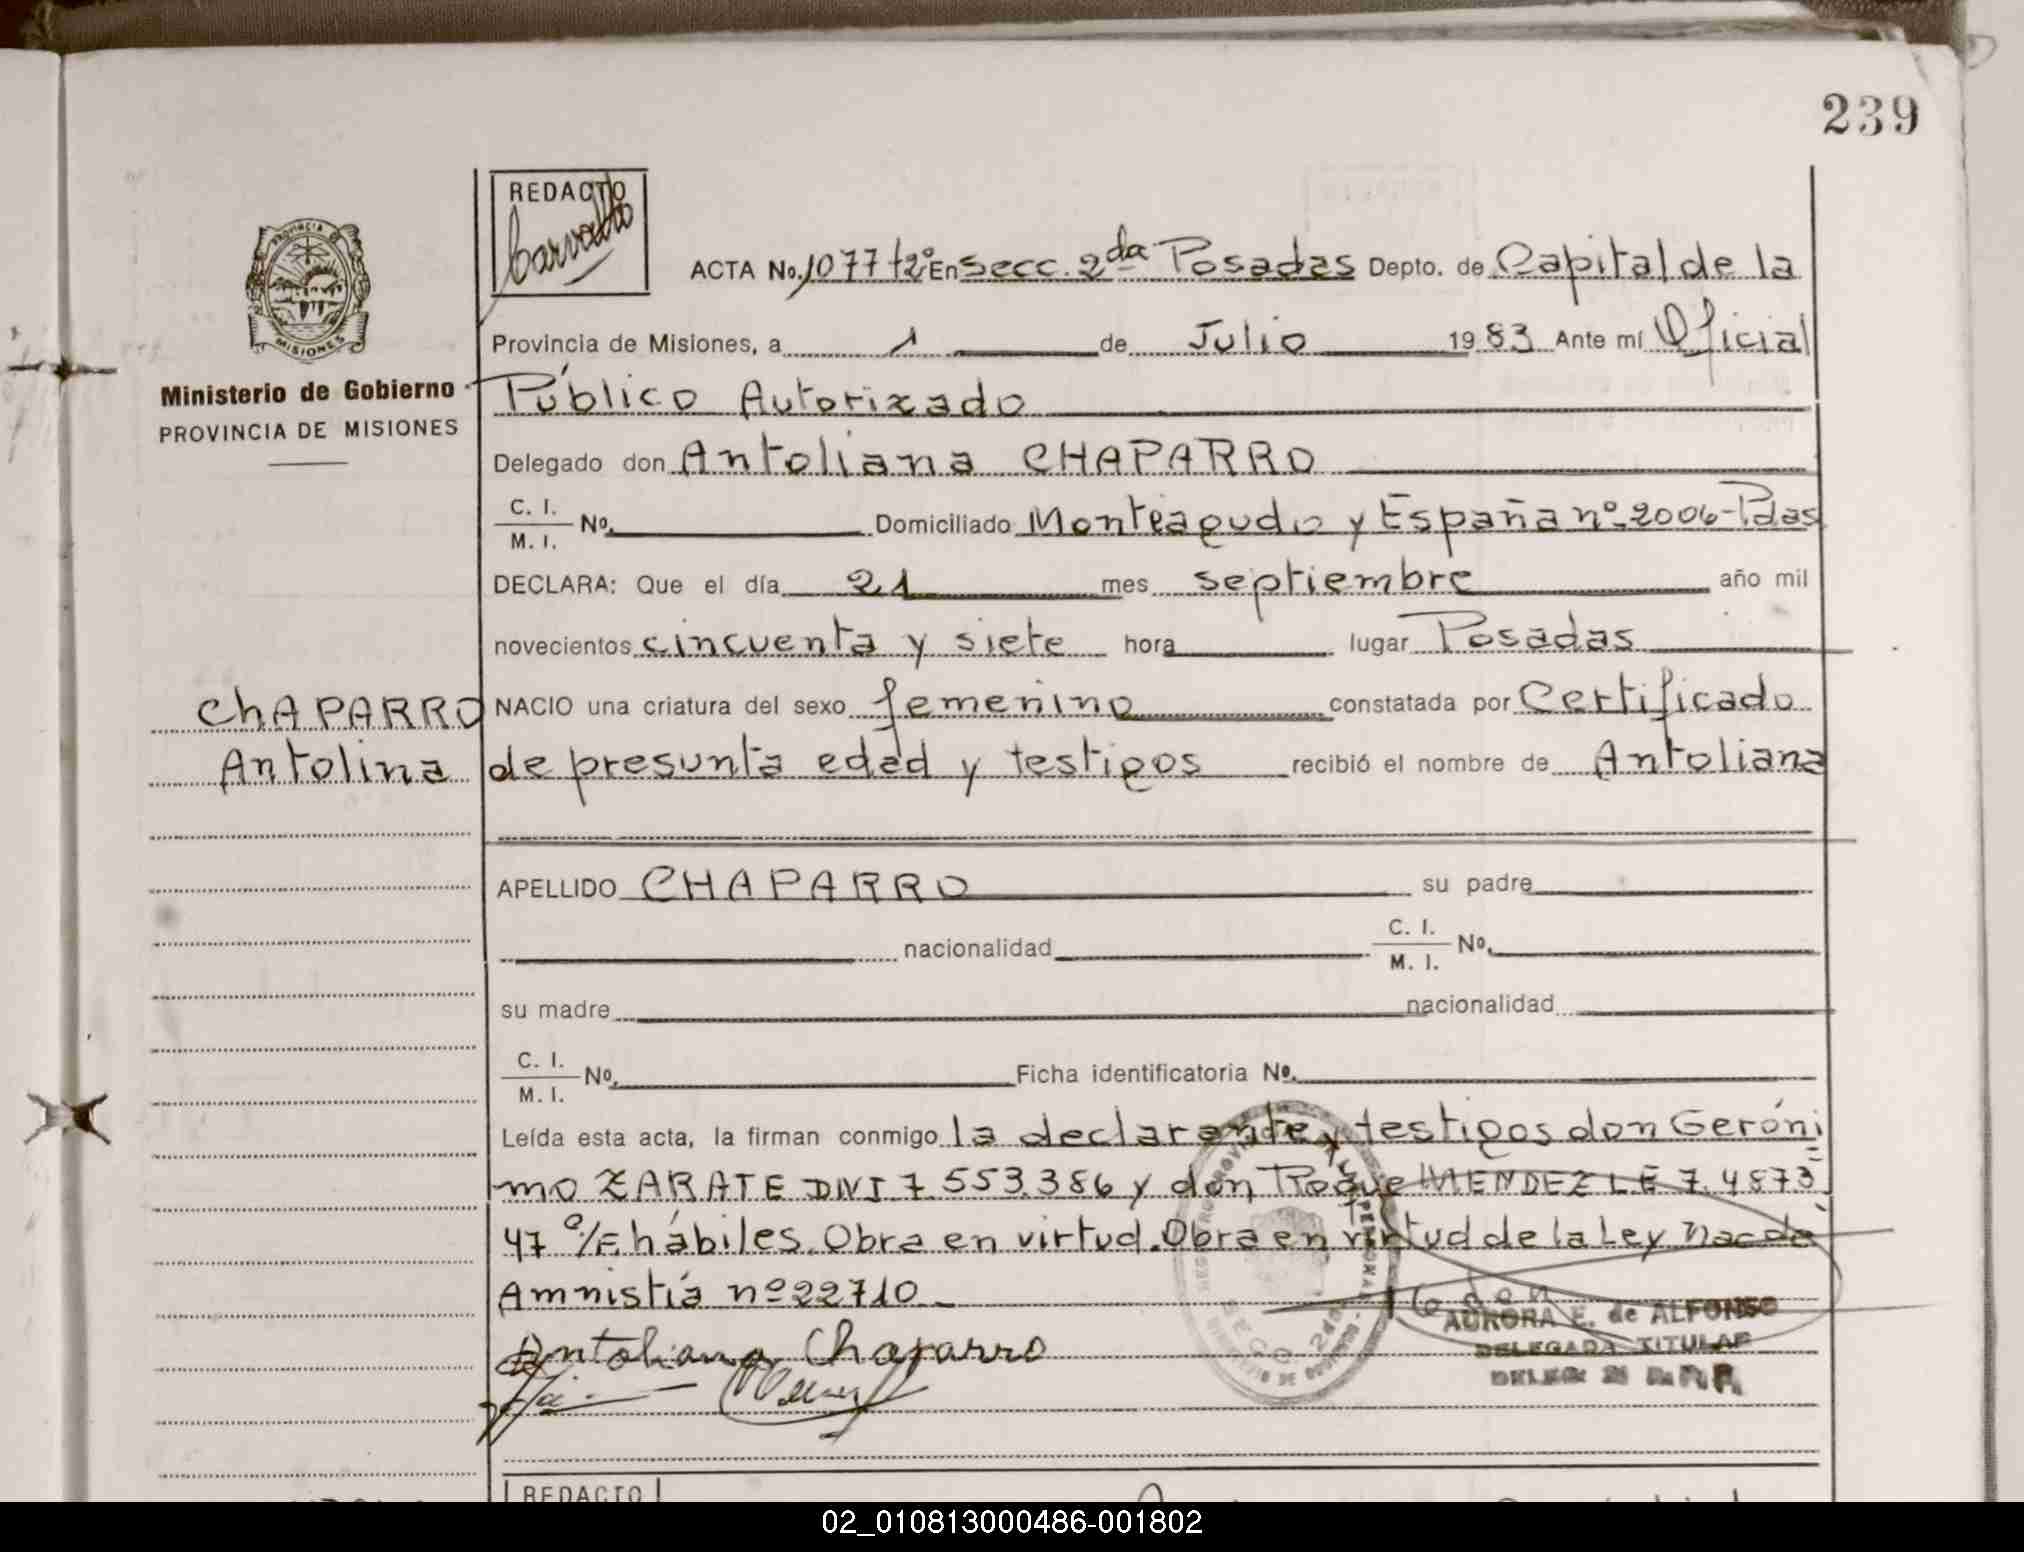 239
REDACTO
Carvallo
ACTA No. 1077 t2º En Secc. 2da Posadas Depto. de Capital de la
Provincia de Misiones, a 1 de Julio 1983 Ante mí Oficial
Público Autorizado
Delegado don Antoliana CHAPARRO
C. I.
M. I. No. Domiciliado Monteagudo y España nº 2006-Pdas
DECLARA: Que el día 21 mes septiembre año mil
novecientos cincuenta y siete hora lugar Posadas
NACIO una criatura del sexo femenino constatada por Certificado
de presunta edad y testigos recibió el nombre de Antoliana
APELLIDO CHAPARRO su padre
nacionalidad C. I.
M. I. No.
su madre nacionalidad
C. I.
M. I. No. Ficha identificatoria No.
Leída esta acta, la firman conmigo la declarante y testigos don Geróni
mo ZARATE DNI 7.553.386 y don Roque MENDEZ LE 7.4873
47 hábiles. Obra en virtud. Obra en virtud de la Ley Nac de
Amnistía nº 22710
Antoliana Chaparro
AURORA E. de ALFONSO
DELEGADA TITULAR
PROVINCIA DE
MISIONES
Ministerio de Gobierno
PROVINCIA DE MISIONES
ChAPARRO
Antolina
REDACTO
02_010813000486-001802